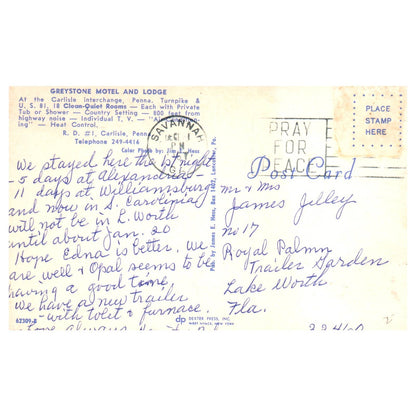 GREYSTONE MOTEL AND LODGE
At the Carlisle interchange, Penna. Turnpike &
U. S. 81, 18 Clean-Quiet Rooms — Each with Private
Tub or Shower — Country Setting — 800 feet from
highway noise — Individual T. V. —
ing" — Heat Control.
R. D. #1, Carlisle, Penna.
Telephone 249-4416
Color Photo by: Jim Hess
SAVANNAH
PM
PRAY
FOR
PEACE
PLACE
STAMP
HERE
Post Card
We stayed here the 1st night
- 5 days at Alexandria -
11 days at Williamsburg
and now in S. Carolinia
will not be in L. Worth
until about Jan. 20
Hope Edna is better. We
are well & Opal seems to be
having a good time.
We have a new trailer
- with toilet & furnace.
Love always
Pub. by James E. Hess, Box 1402, Lancaster, Pa.
Mr & Mrs
James Jelley
No 17
Royal Palmn
Trailer Garden
Lake Worth
Fla.
33460
62309-B
dp DEXTER PRESS, INC.
WEST NYACK, NEW YORK